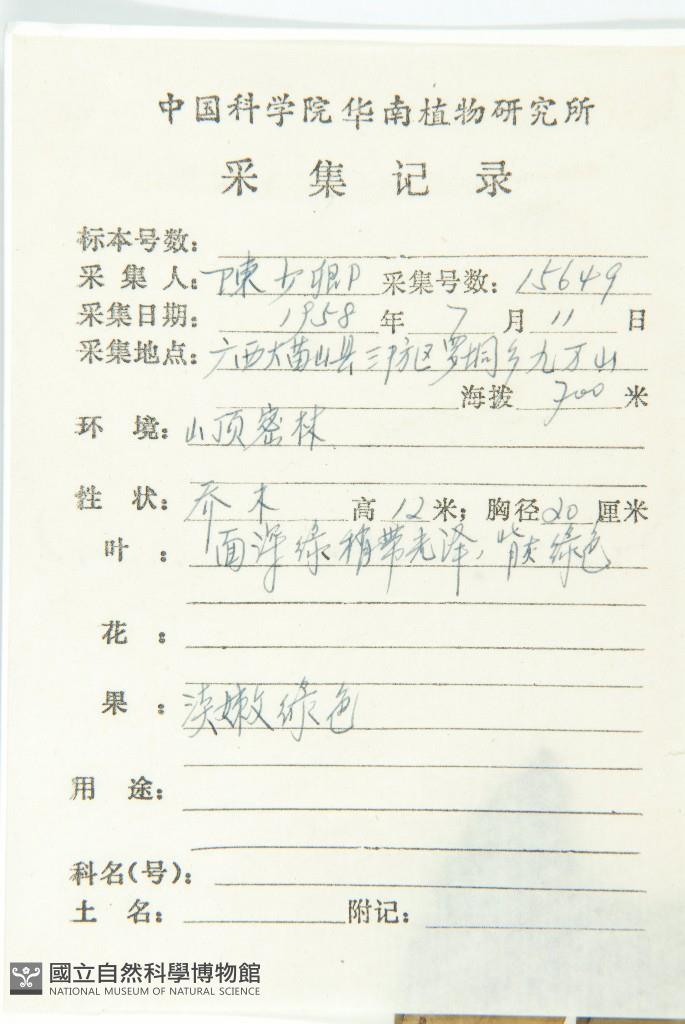 中国科学院华南植物研究所
采集记录
标本号数：
采集人：陳少卿 采集号数：15649
采集日期：1958年7月11日
采集地点：广西大苗山县三防区罗垌乡九万山
海拨700米
环境：山顶密林
性状：乔木 高12米；胸径20厘米
叶：面深绿稍带光泽，背灰绿色
花：
果：淡嫩绿色
用途：
科名(号)：
土名： 附记：
國立自然科學博物館
NATIONAL MUSEUM OF NATURAL SCIENCE